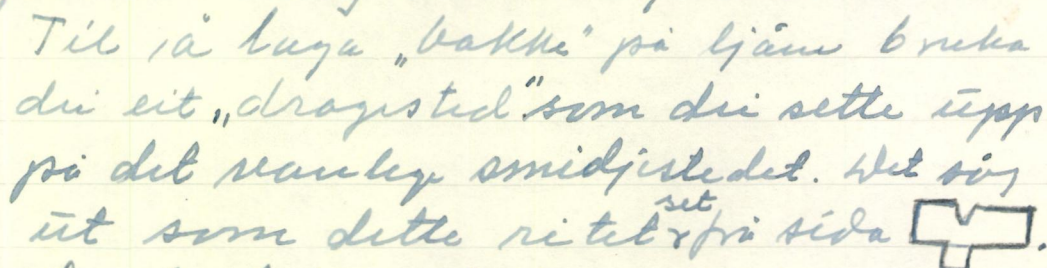 Til å laga „bakke" på ljåm bruka
dei eit „dragisted" som dei sette upp
på det vanlege smidjestedet. Det såg
ut som dette ritet set frå sida